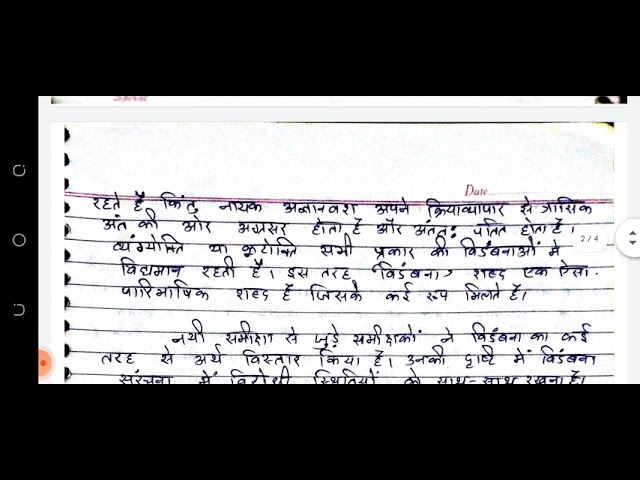 Date
रहते हैं किंतु नायक अज्ञानवश अपने क्रियाव्यापार से त्रासिक
अंत की ओर अग्रसर होता है और अंतत: पतित होता है।
व्यंग्योक्ति या कूटोक्ति सभी प्रकार की विडंबनाओं में
2/4
विद्यमान रहती है। इस तरह 'विडंबना' शब्द एक ऐसा
पारिभाषिक शब्द है जिसके कई रूप मिलते है।
नयी समीक्षा से जुड़े समीक्षकों ने विडंबना का कई
तरह से अर्थ विस्तार किया है। उनकी दृष्टि में विडंबना
संरचना में विरोधी स्थितियों को साथ-साथ रखना है।